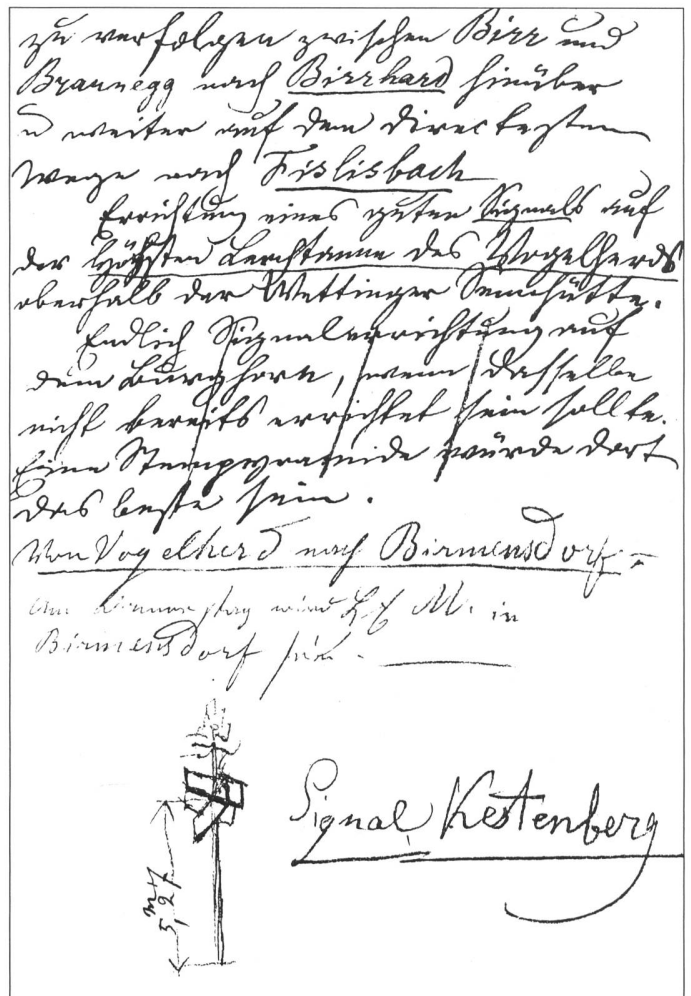 zu verfolgen zwischen Birr und
Braunegg nach Birrhard hinüber
u weiter auf dem directesten
Wege nach Fislisbach
Errichtung eines guten Signals auf
der höchsten Lerchtanne des Vogelherds
oberhalb der Wettinger Sennhütte.
Endlich Signalerrichtung auf
dem Burghorn, wenn dasselbe
nicht bereits errichtet sein sollte.
Eine Steinpyramide würde dort
das beste sein.
Von Vogelherd nach Birmensdorf.
am Donnerstag wird H M. in
Birmensdorf sein.
Signal Kestenberg
5,27 m